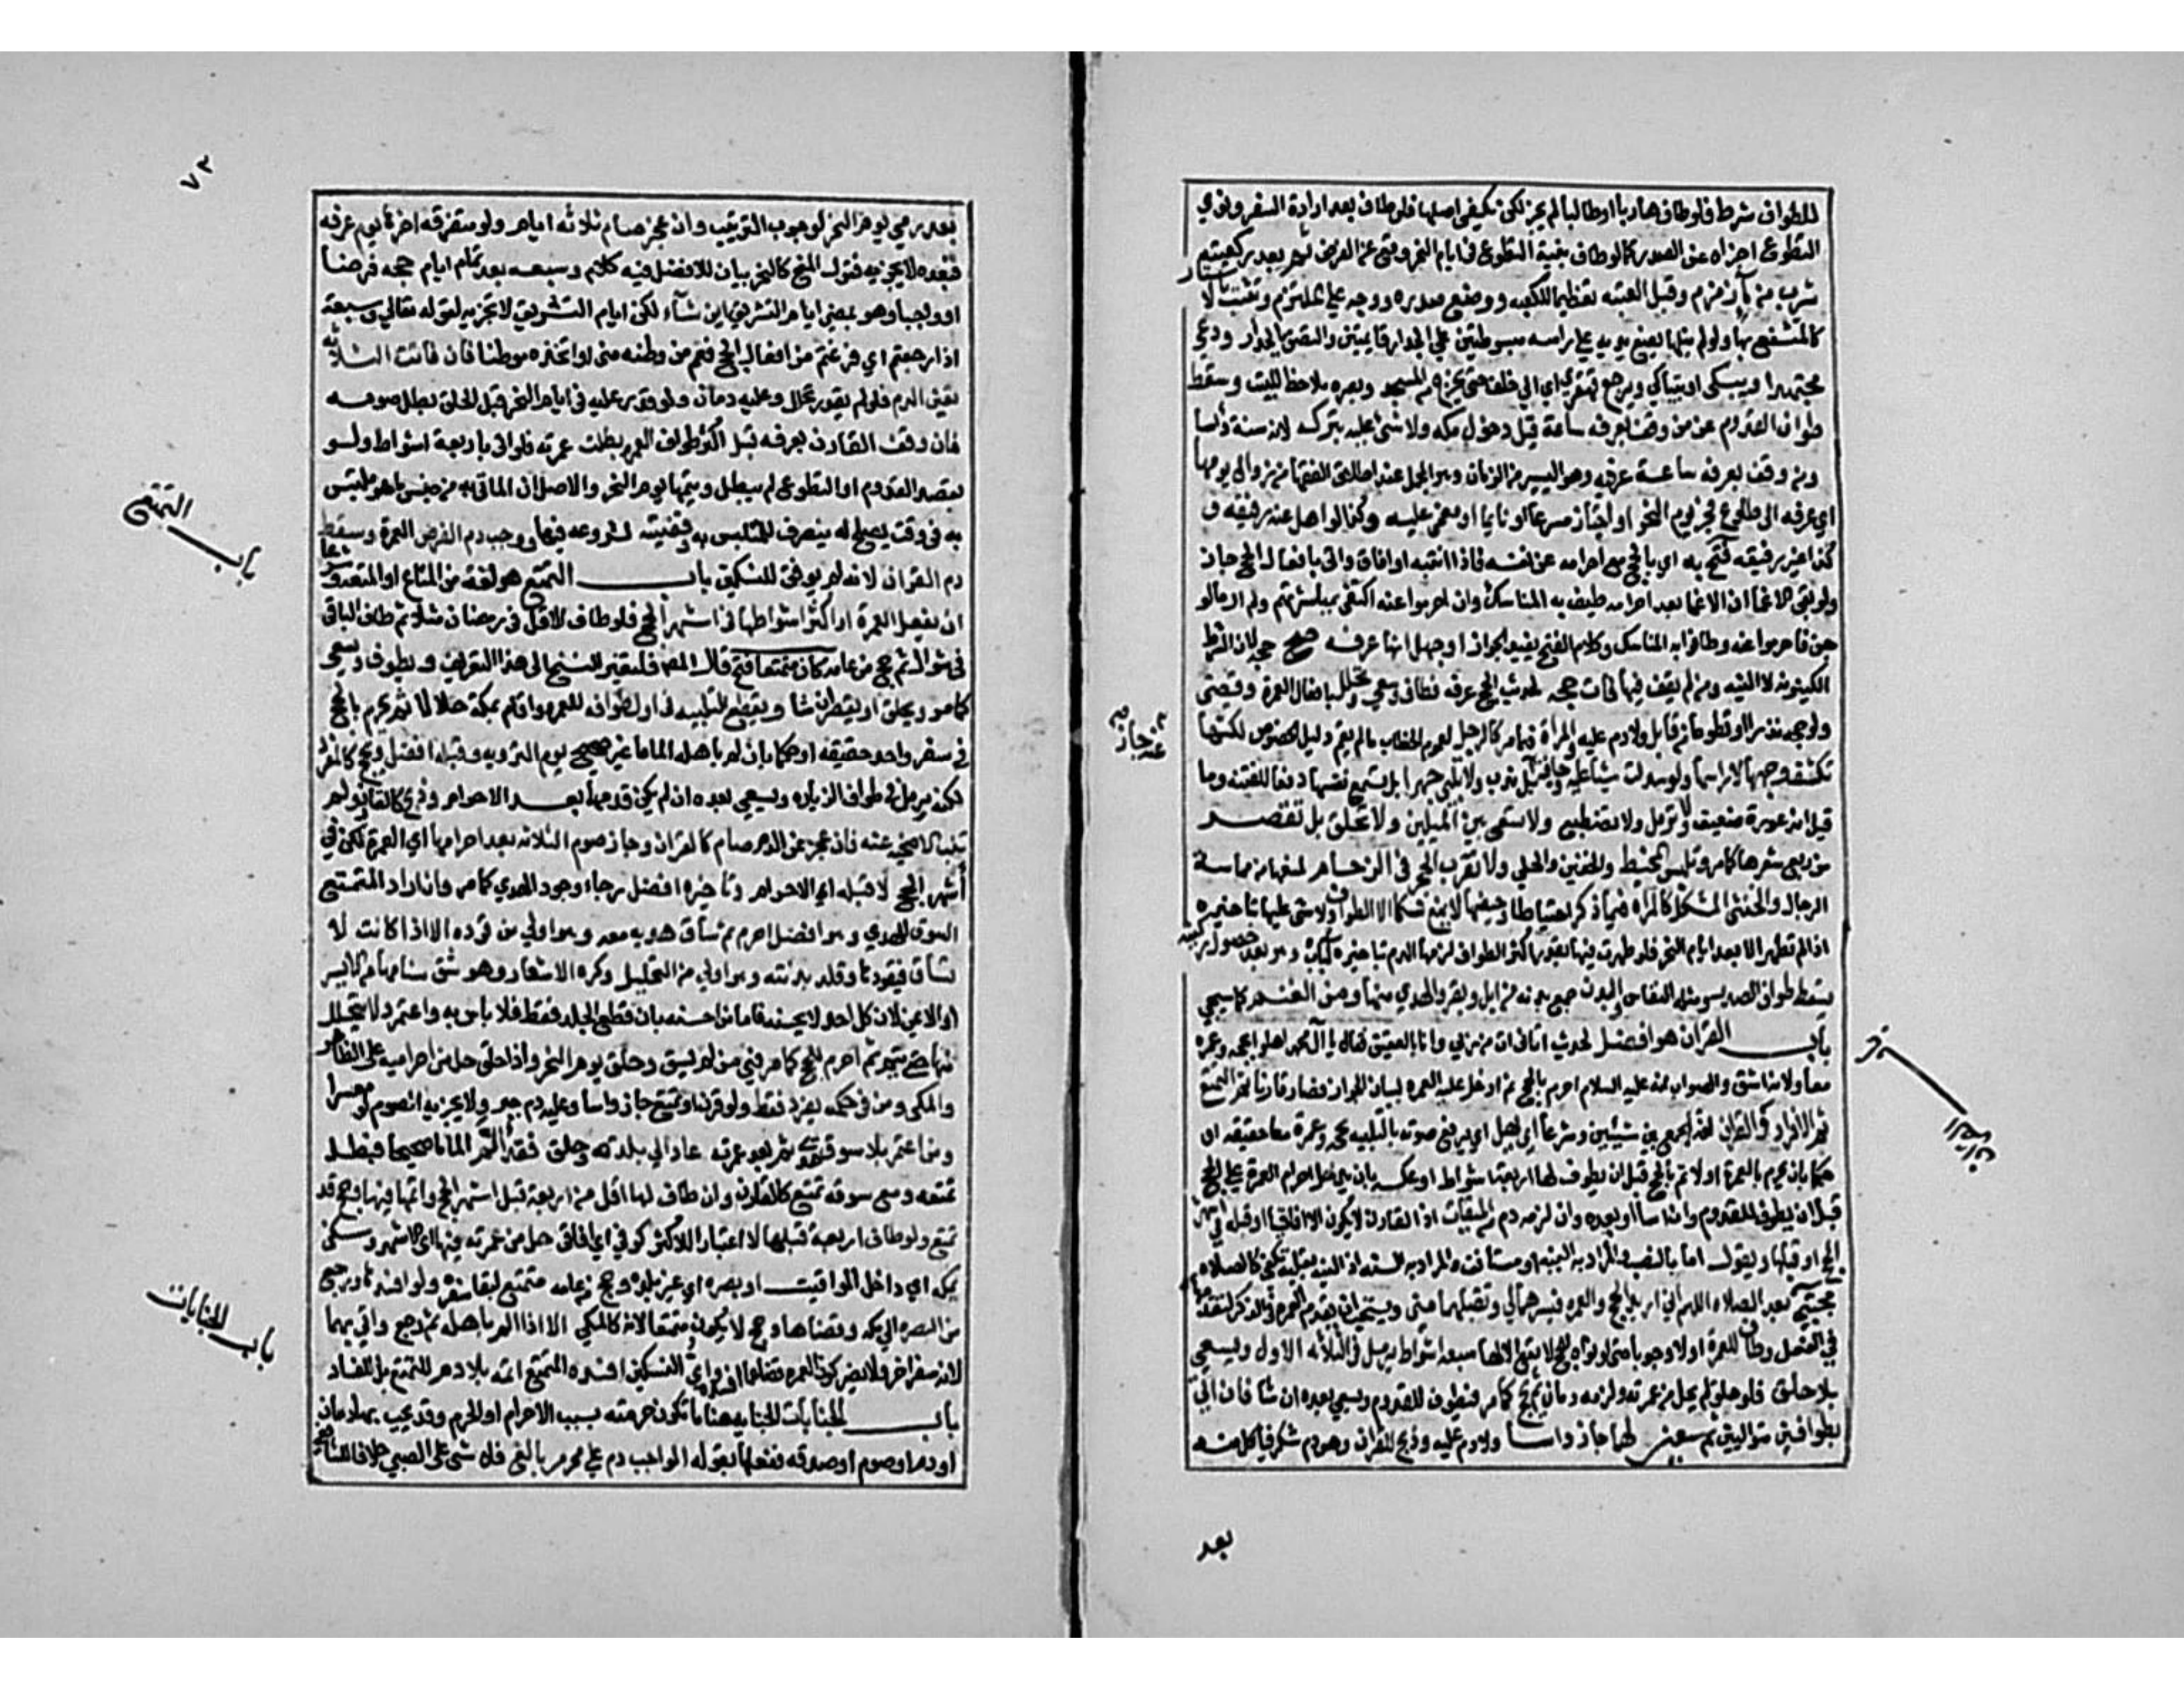 للطواف شرط فلو طاف هاربا او طالبا لم يجز لكن يكفي اصلها فلو طاف بعد ارادة السفر ونوى
التطوع اجزاه عن الصدر كما لو طاف بنية التطوع في ايام النحر وقع عن الفرض ثم بعد ركعتيه
شرب من ماء زمزم وقبل العتبه تعظيما للكعبه ووضع صدره ووجهه على الملتزم وتشبث بالاستار
كالمتشفع بها ولو لم ينلها يضع يديه على راسه مبسوطتين على الجدار قايمتين والتصق بالجدار ودعى
مجتهدا ويبكى او يتباكى ويرجع قهقرى اي الى خلف حتى يخرج من المسجد وبصره ملاحظ للبيت وسقط
طواف القدوم عن من وقف بعرفه ساعة قبل دخول مكه ولا شى عليه بتركه لانه سنة واسا
ومن وقف بعرفه ساعة عرفيه وهو اليسير من الزمان وهو المحمل عند اطلاق الفقها من زوال يومها
اي عرفه الى طلوع فجر يوم النحر او اجتاز مسرعا او نايما او مغمى عليه وكذا لو اهل عنه رفيقه
كذا غير رفيقه به اي بالحج مع احرامه عن نفسه فاذا انتبه او افاق واتى بافعال الحج جاز
ولو بقي الاغما ان الاغما بعد احرامه طيف به المناسك وان احرموا عنه اكتفى بمباشرتهم ولم ار ما لو
جن فاحرموا عنه وطافوا به المناسك وكلام الفتح يفيد الجواز او جهل انها عرفه صح حجه لان الشرط
الكينونة لا النيه ومن لم يقف فيها فات حجه لحديث الحج عرفه فطاف وسعى وتحلل بافعال العمرة وقضى
ولو حجه نذرا او تطوعا من قابل ولا دم عليه والمراة فيما مر كالرجل لعموم الخطاب ما لم يقم دليل الخصوص لكنها
تكشف وجهها لا راسها ولو سدلت شيا عليه وجافته جاز بل يندب ولا تلبي جهرا بل تسمع نفسها دفعا للفتنه وما
قيل انه عورة ضعيف ولا ترمل ولا تضطبع ولا تسعى بين الميلين ولا تحلق بل تقصر
من ربع شعرها كما مر وتلبس المخيط والخفين والحلي ولا تقرب الحجر في الزحام لمنعها من مماسة
الرجال والخنثى المشكل كالمراة فيما ذكر احتياطا وحيضها لا يمنع نسكا الا الطواف ولا شى عليها بتاخيره
اذا لم تطهر الا بعد ايام النحر فلو طهرت فيها بقدر اكثر الطواف لزمها الدم بتاخيره لباب وهو بعد حصول ركنيه
يسقط طواف الصدر ومثله النفاس والبدن جمع بدنه من ابل وبقر والهدي منهما ومن الغنم كما سيجي
باب القران هو افضل لحديث اتاني ات من ربي وانا بالعقيق فقال يا آل محمد اهلوا بحجه وعمره
معا ولانه اشق والصواب انه عليه السلام احرم بالحج ثم ادخل عليه العمره لبيان الجواز فصار قارنا ثم التمتع
ثم الافراد والقران لغة الجمع بين شيئين وشرعا ان يهل اي يرفع صوته بالتلبيه بحجه وعمرة معا حقيقه او
حكما بان يحرم بالعمرة اولا ثم بالحج قبل ان يطوف لها اربعة اشواط او عكسه بان يدخل احرام العمرة على الحج
قبل ان يطوف للقدوم وان اسا او بعده وان لزمه دم من الميقات اذ القارن لا يكون الا افاقيا او قبله في اشهر
الحج او قبلها ويقول اما بالنصب والمراد به النية او مستانف والمراد به السنه اذ النيه بقلبه تكفي كالصلاه
بعد الصلاه اللهم اني اريد الحج والعمره فيسرهما لي وتقبلهما مني ويستحب ان يقدم العمره في الذكر لتقدمها
في الفعل وطاف للعمرة اولا وجوبا حتى لو نواه للحج لا يقع الا لها سبعة اشواط يرمل في الثلاثه الاول ويسعى
بلا حلق فلو حلق لم يحل من عمرته ولزمه دمان ثم يحج كما مر فيطوف للقدوم ويسعى بعده ان شا فان اتى
بطوافين متواليين ثم سعيين لهما جاز واسا ولا دم عليه وذبح للقران وهو دم شكر فياكل منه
بعد
عن جابر
باب القران
٧٣
بعد رمي يوم النحر لوجوب الترتيب وان عجز صام ثلاثه ايام ولو متفرقه اخرها يوم عرفه
فبعده لا يجزيه فقول المنح كالنحر بيان للافضل فيه كلام وسبعه بعد تمام ايام حجه فرضا
او واجبا وهو بمضي ايام التشريق اين شآء لكن ايام التشريق لا تجزيه لقوله تعالى وسبعة
اذا رجعتم اي فرغتم من افعال الحج فعم من وطنه منى او اتخذه موطنا فان فاتت الثلاثه
تعين الدم فلو لم يقدر تحلل وعليه دمان ولو قدر عليه في ايام النحر قبل الحلق بطل صومه
فان وقف القارن بعرفه قبل اكثر طواف العمره بطلت عمرته فلو اتى باربعة اشواط ولو
بقصد القدوم او التطوع لم يبطل ويتمها يوم النحر والاصل ان الماتى به من جنس ما هو متلبس
به في وقت يصلح له ينصرف للمتلبس به وقضيته لشروعه فيها ووجب دم الفرض العمرة وسقط
دم القران لانه لم يوفق للنسكين باب التمتع هو لغة من المتاع او المتعة وشرعا
ان يفعل العمرة او اكثر اشواطها في اشهر الحج فلو طاف الاقل في رمضان مثلا ثم طاف الباقى
في شوال ثم حج من عامه كان متمتعا فتح قال المص فلتغير النسخ الى هذا التعريف ويطوف ويسعى
كما مر ويحلق او يقصر ان شا ويقطع التلبيه في اول طوافه للعمره واقام بمكة حلالا ثم يحرم بالحج
في سفر واحد حقيقه او حكما بان لم يلم باهله الماما غير صحيح يوم الترويه وقبله افضل ويحج كالمفرد
لكنه يرمل في طواف الزياره ويسعى بعده ان لم يكن قدمهما بعد الاحرام وذبح كالقارن ولم
تنب الاضحيه عنه فان عجز عن الدم صام كالقران وجاز صوم الثلاثه بعد احرامها اي العمرة لكن في
أشهر الحج لا قبله اي الاحرام وتاخيره افضل رجاء وجود الهدي كما مر وان اراد المتمتع
السوق للهدي وهو افضل احرم ثم ساق هديه معه وهو اولى من قوده الا اذا كانت لا
تساق فيقودها وقلد بدنته وهو اولى من التجليل وكره الاشعار وهو شق سنامها من الايسر
او الايمن لان كل احد لا يحسنه فاما من احسنه بان قطع الجلد فقط فلا باس به واعتمر ولا يتحلل
منها حتى يحج ثم احرم للحج كما مر فيمن لم يسق وحلق يوم النحر واذا حلق حل من احراميه على الظاهر
والمكي ومن في حكمه يفرد فقط ولو قرن او تمتع جاز واسا وعليه دم جبر ولا يجزيه الصوم لو معسرا
ومن اعتمر بلا سوق هدي ثم بعد عمرته عاد الى بلدته وحلق فقد ألم الماما صحيحا فبطل
تمتعه ومع سوقه تمتع كالقارن وان طاف لها اقل من اربعة قبل اشهر الحج واتمها فيها وحج فقد
تمتع ولو طاف اربعة قبلها لا اعتبارا للاكثر كوفي اي افاقي حل من عمرته فيها اي الاشهر وسكن
بمكه اي داخل المواقيت او بصره اي غير بلده وحج من عامه متمتع لبقا سفره ولو افسدها ورجع
من البصره الى مكه وقضاها وحج لا يكون متمتعا لانه كالمكي الا اذا الم باهله ثم رجع واتى بهما
لانه سفر اخر ولا يضر كون العمره قضا عما افسده واي النسكين افسده المتمتع اتمه بلا دم للتمتع بل للفساد
باب الجنايات الجنايه هنا ما تكون حرمته بسبب الاحرام او الحرم وقد يجب بها دمان
او دم او صوم او صدقه ففصلها بقوله الواجب دم على محرم بالغ فلا شى على الصبي خلافا للشافعي
باب التمتع
باب الجنايات